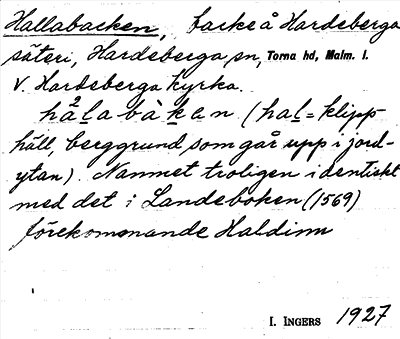 Hallabacken, backe å Hardeberga
säteri, Hardeberga sn, Torna hd, Malm. l.
V. Hardeberga kyrka.
hå²labàkan (hal = klipp-
häll, berggrund som går upp i jord-
ytan). Namnet troligen identiskt
med det i Landeboken (1569)
förekommande Haldinn
I. INGERS 1927